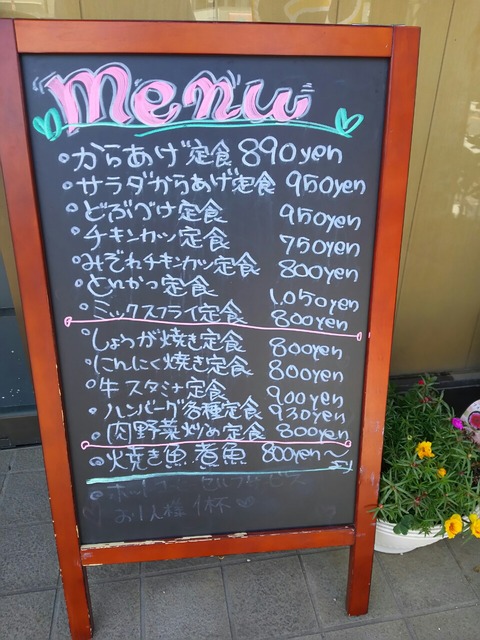 Menu
からあげ定食 890yen
サラダからあげ定食 950yen
どぶづけ定食 950yen
チキンカツ定食 750yen
みぞれチキンカツ定食 800yen
とんかつ定食 1,050yen
ミックスフライ定食 800yen
しょうが焼き定食 800yen
にんにく焼き定食 800yen
牛スタミナ定食 900yen
ハンバーグ各種定食 930yen
肉野菜炒め定食 800yen
焼き魚 煮魚 800yen〜
セルフサービス
お一人様 1杯